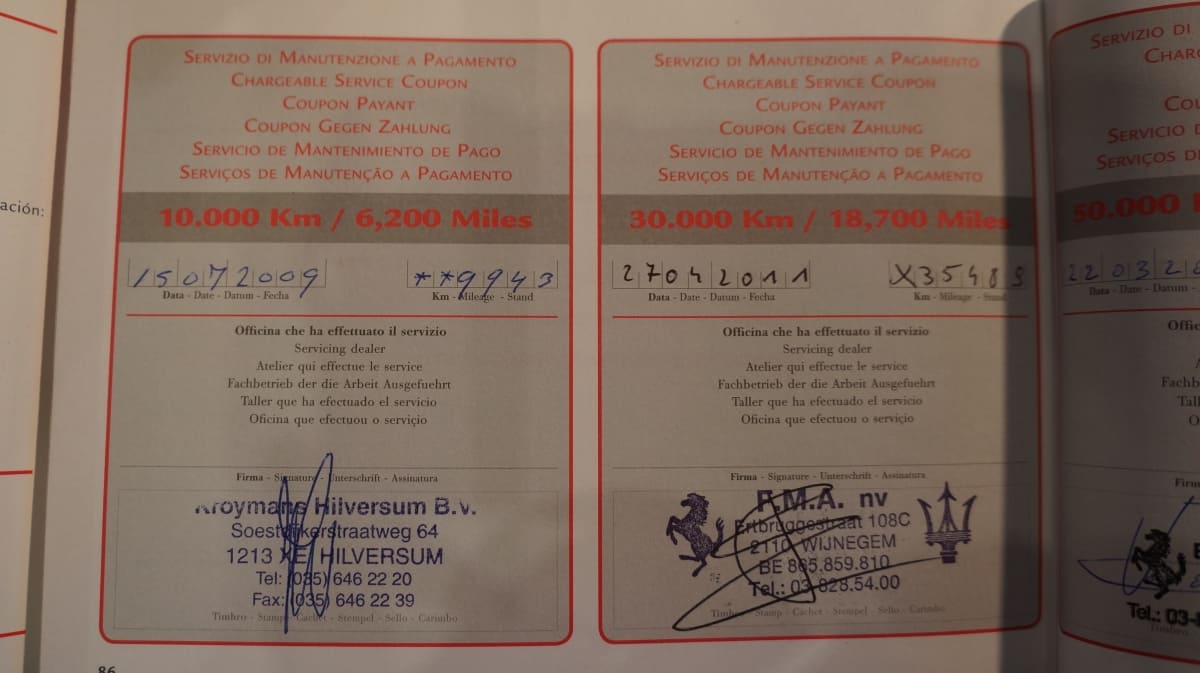 ación:
SERVIZIO DI MANUTENZIONE A PAGAMENTO
CHARGEABLE SERVICE COUPON
COUPON PAYANT
COUPON GEGEN ZAHLUNG
SERVICIO DE MANTENIMIENTO DE PAGO
SERVIÇOS DE MANUTENÇÃO A PAGAMENTO
10.000 Km / 6,200 Miles
15072009 **9943
Data - Date - Datum - Fecha Km - Mileage - Stand
Officina che ha effettuato il servizio
Servicing dealer
Atelier qui effectue le service
Fachbetrieb der die Arbeit Ausgefuehrt
Taller que ha efectuado el servicio
Oficina que efectuou o serviçio
Firma - Signature - Unterschrift - Assinatura
Kroymans Hilversum B.V.
Soestdijkerstraatweg 64
1213 XE HILVERSUM
Tel: (035) 646 22 20
Fax: (035) 646 22 39
Timbro - Stamp - Cachet - Stempel - Sello - Carimbo
86
SERVIZIO DI MANUTENZIONE A PAGAMENTO
CHARGEABLE SERVICE COUPON
COUPON PAYANT
COUPON GEGEN ZAHLUNG
SERVICIO DE MANTENIMIENTO DE PAGO
SERVIÇOS DE MANUTENÇÃO A PAGAMENTO
30.000 Km / 18,700 Miles
27042011 X35489
Data - Date - Datum - Fecha Km - Mileage - Stand
Officina che ha effettuato il servizio
Servicing dealer
Atelier qui effectue le service
Fachbetrieb der die Arbeit Ausgefuehrt
Taller que ha efectuado el servicio
Oficina que efectuou o serviçio
Firma - Signature - Unterschrift - Assinatura
F.M.A. nv
Ertbruggestraat 108C
2110 WIJNEGEM
BE 865.859.810
Tel.: 03-828.54.00
Timbro - Stamp - Cachet - Stempel - Sello - Carimbo
SERVIZIO DI
CHARG
COU
SERVICIO D
SERVIÇOS DE
50.000
220320
Data - Date - Datum
Offic
Fachb
Tall
O
Firm
Tel.: 03-8